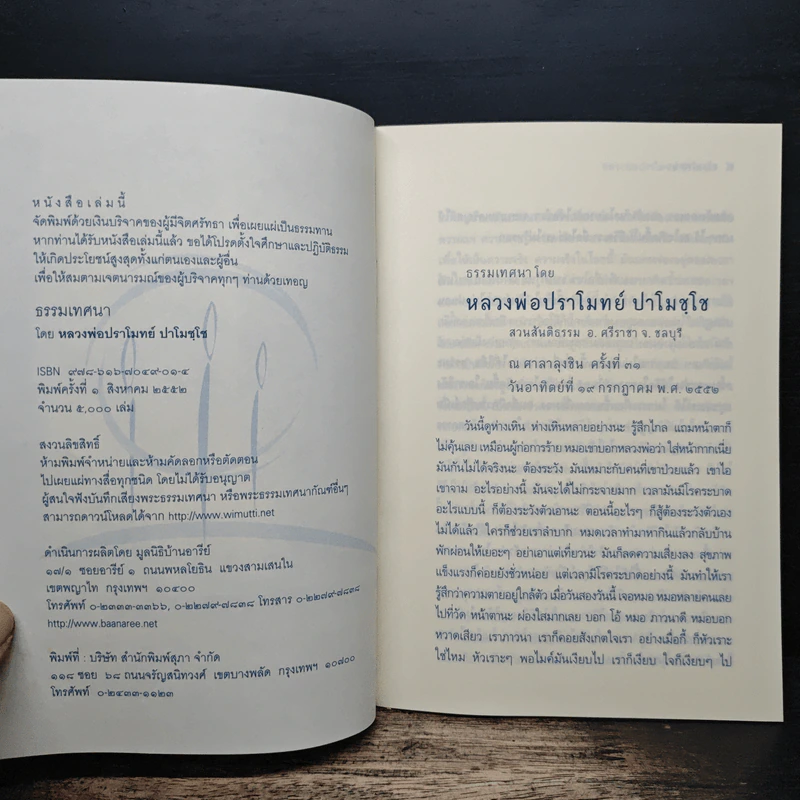 หนังสือเล่มนี้
จัดพิมพ์ด้วยเงินบริจาคของผู้มีจิตศรัทธา เพื่อเผยแผ่เป็นธรรมทาน
หากท่านได้รับหนังสือเล่มนี้แล้ว ขอได้โปรดตั้งใจศึกษาและปฏิบัติธรรม
ให้เกิดประโยชน์สูงสุดทั้งแก่ตนเองและผู้อื่น
เพื่อให้สมตามเจตนารมณ์ของผู้บริจาคทุกๆ ท่านด้วยเทอญ
ธรรมเทศนา
โดย หลวงพ่อปราโมทย์ ปาโมชฺโช
ISBN ๙๗๘-๖๑๖-๗๐๔๙-๐๑-๔
พิมพ์ครั้งที่ ๑ สิงหาคม ๒๕๕๒
จำนวน ๕,๐๐๐ เล่ม
สงวนลิขสิทธิ์
ห้ามพิมพ์จำหน่ายและห้ามคัดลอกหรือตัดตอน
ไปเผยแผ่ทางสื่อทุกชนิด โดยไม่ได้รับอนุญาต
ผู้สนใจฟังบันทึกเสียงพระธรรมเทศนา หรือพระธรรมเทศนากัณฑ์อื่นๆ
สามารถดาวน์โหลดได้จาก http://www.wimutti.net
ดำเนินการผลิตโดย มูลนิธิบ้านอารีย์
๑๗/๑ ซอยอารีย์ ๑ ถนนพหลโยธิน แขวงสามเสนใน
เขตพญาไท กรุงเทพฯ ๑๐๔๐๐
โทรศัพท์ ๐-๒๓๓๓-๓๓๖๖, ๐-๒๒๗๙-๗๘๓๘ โทรสาร ๐-๒๒๗๙-๗๘๓๘
http://www.baanaree.net
พิมพ์ที่ : บริษัท สำนักพิมพ์สุภา จำกัด
๑๑๘ ซอย ๖๘ ถนนจรัญสนิทวงศ์ เขตบางพลัด กรุงเทพฯ ๑๐๗๐๐
โทรศัพท์ ๐-๒๔๓๓-๑๑๒๓
ธรรมเทศนาโดย
หลวงพ่อปราโมทย์ ปาโมชฺโช
สวนสันติธรรม อ. ศรีราชา จ. ชลบุรี
ณ ศาลาลุงชิน ครั้งที่ ๓๑
วันอาทิตย์ที่ ๑๙ กรกฎาคม พ.ศ. ๒๕๕๒
วันนี้ดูห่างเหิน ห่างเหินหลายอย่างนะ รู้สึกไกล แถมหน้าตาก็
ไม่คุ้นเลย เหมือนผู้ก่อการร้าย หมอเขาบอกหลวงพ่อว่า ใส่หน้ากากเนี่ย
มันกันไม่ได้จริงนะ ต้องระวัง มันเหมาะกับคนที่เขาป่วยแล้ว เขาไอ
เขาจาม อะไรอย่างนี้ มันจะได้ไม่กระจายมาก เวลามันมีโรคระบาด
อะไรแบบนี้ ก็ต้องระวังตัวเอานะ ตอนนี้อะไรๆ ก็สู้ต้องระวังตัวเอง
ไม่ได้แล้ว ใครก็ช่วยเราลำบาก หมดเวลาทำมาหากินแล้วกลับบ้าน
พักผ่อนให้เยอะๆ อย่าเอาแต่เที่ยวนะ มันก็ลดความเสี่ยงลง สุขภาพ
แข็งแรงก็ค่อยยังชั่วหน่อย แต่เวลามีโรคระบาดอย่างนี้ มันทำให้เรา
รู้สึกว่าความตายอยู่ใกล้ตัว เมื่อวันสองวันนี้ เจอหมอ หมอหลายคนเลย
ไปที่วัด หน้าตานะ ผ่องใสมากเลย บอก โอ้ หมอ ภาวนาดี หมอบอก
หวาดเสียว เราภาวนา เราก็คอยสังเกตใจเรา อย่างเมื่อกี้ ก็หัวเราะ
ใช่ไหม หัวเราะๆ พอไมค์มันเงียบไป เราก็เงียบ ใจก็เงียบๆ ไป